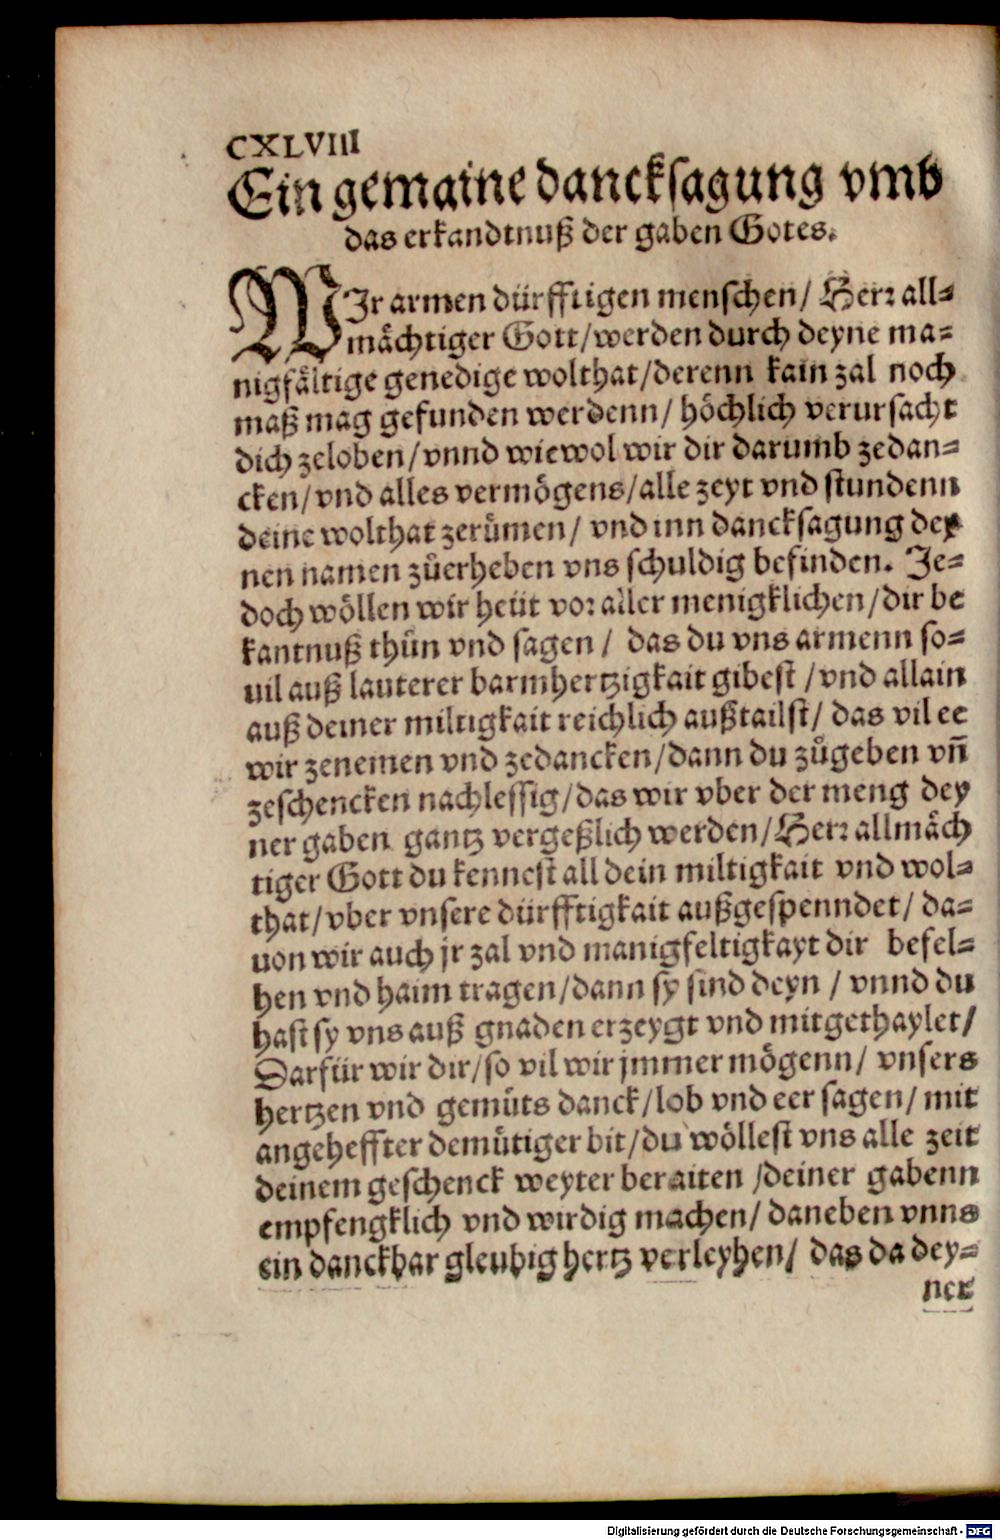 CXLVIII
Ein gemaine dancksagung vmb
das erkandtnuß der gaben Gotes.
WIr armen dürfftigen menschen/ Herr all-
mächtiger Gott/werden durch deyne ma-
nigfältige genedige wolthat/derenn kain zal noch
maß mag gefunden werdenn/ höchlich verursacht
dich zeloben/vnnd wiewol wir dir darumb zedan-
cken/vnd alles vermögens/alle zeyt vnd stundenn
deine wolthat zerůmen/ vnd inn dancksagung dey
nen namen zůerheben vns schuldig befinden. Je-
doch wöllen wir heüt vor aller menigklichen/dir be
kantnuß thůn vnd sagen/ das du vns armenn so-
uil auß lauterer barmhertzigkait gibest/vnd allain
auß deiner miltigkait reichlich außtailst/ das vil ee
wir zenemen vnd zedancken/dann du zůgeben vñ
zeschencken nachlessig/das wir vber der meng dey
ner gaben gantz vergeßlich werden/Herr allmäch
tiger Gott du kennest all dein miltigkait vnd wol-
that/vber vnsere dürfftigkait außgespenndet/ da-
uon wir auch jr zal vnd manigfeltigkayt dir befel-
hen vnd haim tragen/dann sy sind deyn/ vnnd du
hast sy vns auß gnaden erzeygt vnd mitgethaylet/
Darfür wir dir/so vil wir jmmer mögenn/ vnsers
hertzen vnd gemüts danck/lob vnd eer sagen/ mit
angeheffter demütiger bit/du wöllest vns alle zeit
deinem geschenck weyter beraiten/deiner gabenn
empfengklich vnd wirdig machen/ daneben vnns
ein danckbar gleubig hertz verleyhen/ das da dey-
ner
Digitalisierung gefördert durch die Deutsche Forschungsgemeinschaft - DFG